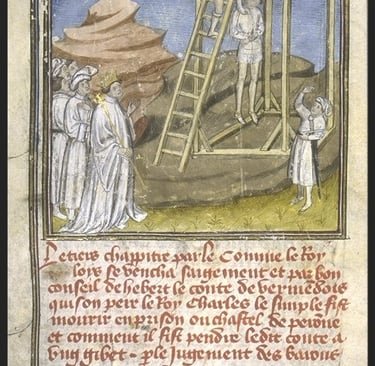 Le tiers chappitre parle Comme le Roy
loys se vencha sagement et par bon
conseil de hebert le conte de vermendois
qui son pere le Roy Charles le simple fist
mourir en prison ou chastel de perone
et comment il fist pendre ledit conte a
ung gibet - p le Jugement des barons